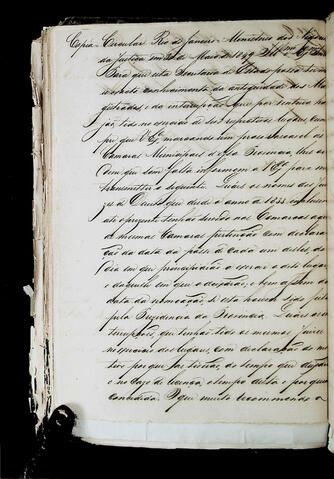 Copia. Circular Rio de Janeiro Ministerio dos Negocios
da Justiça em de Maio de 1849. Illmo Exmo Snr
Para que esta Secretaria de Estado possa ter um
conhecimento da antiguidade dos Ma
gistrados e da interrupção que por ventura ha
jão tido no exercicio de seus respectivos lugares, Cum
pre que VEx marcando um praso rasoavel as
Camaras Municipaes d'essa Provincia, lhes or
dem que sem falta informem a VEx para me
transmittir o seguinte. Quaes os nomes dos ju
izes de Direito que desde o anno de 1833
até o presente tenhão servido nas Comarcas a que
as mesmas Camaras pertenção com declara
ção da data da posse de cada um delles, do
dia em que principiarão a exercer o dito lugar
e daquelle em que o deixarão, e bem assim da
data da nomeação, se esta houver sido feita
pela Presidencia da Provincia. Quaes as in
terrupções, que tenhão tido os mesmos Juizes
no exercicio dos lugares, com declaração do mo
tivo porque as tiverão, do tempo que durarão
e no caso de licença, o tempo desta e por quem
concedida. O que muito recommendo a